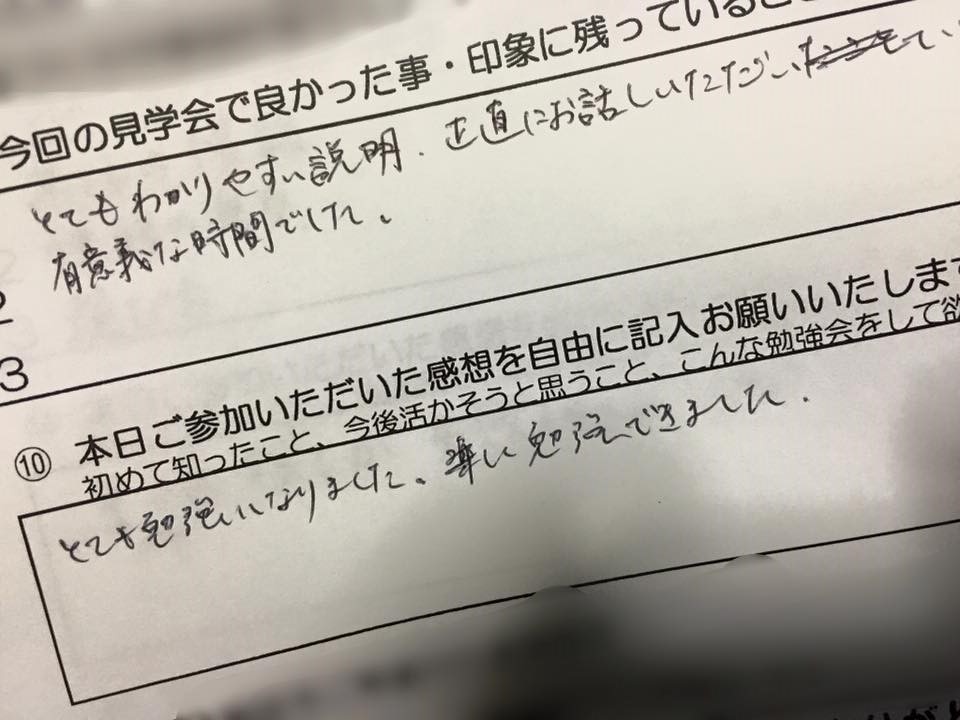 今回の見学会で良かった事・印象に残っているこ
とてもわかりやすい説明．正直にお話しいただい
有意義な時間でした。
3
⑩ 本日ご参加いただいた感想を自由に記入お願いいたします
初めて知ったこと、今後活かそうと思うこと、こんな勉強会をして欲
とても勉強になりました。楽しい勉強できました．